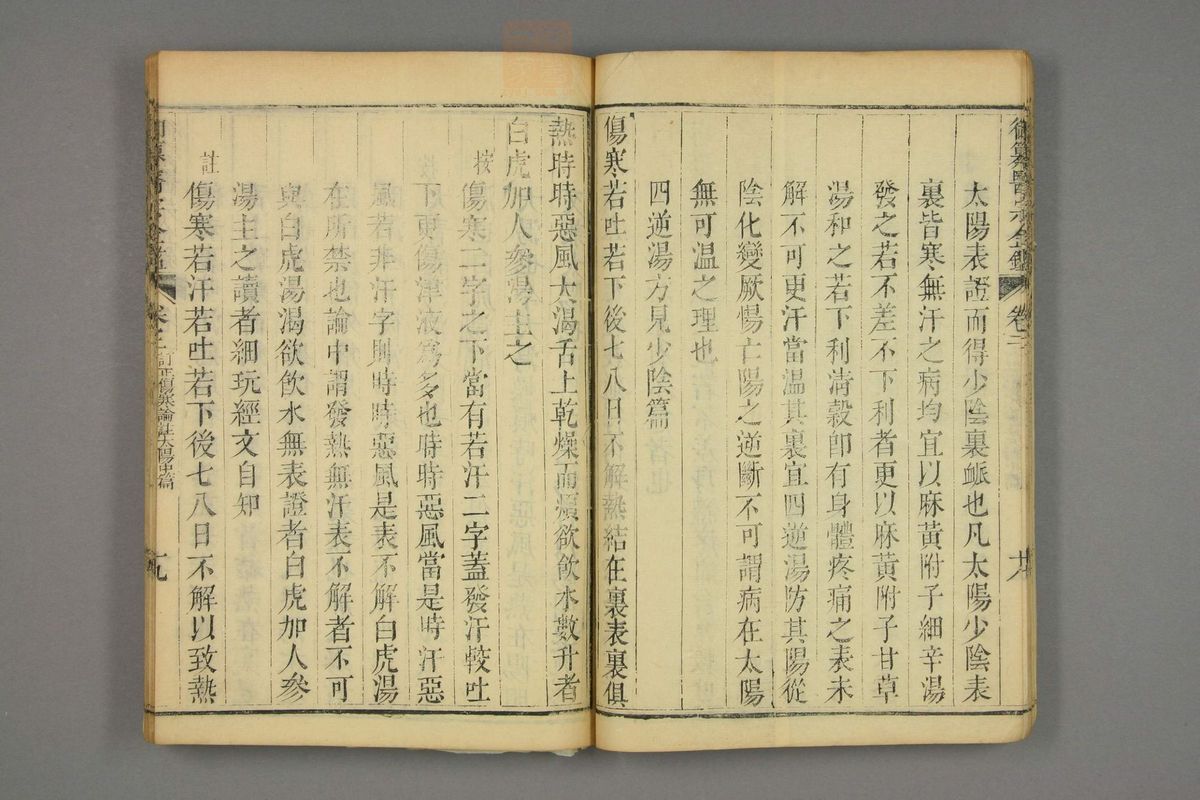 御纂醫宗金鑑 卷二
太陽表證而得少陰裏脈也凡太陽少陰表
裏皆寒無汗之病均宜以麻黃附子細辛湯
發之若不差不下利者更以麻黃附子甘草
湯和之若下利清穀即有身體疼痛之表未
解不可更汗當温其裏宜四逆湯防其陽從
陰化變厥惕亡陽之逆斷不可謂病在太陽
無可温之理也
四逆湯方見少陰篇
傷寒若吐若下後七八日不解熱結在裏表裏俱
熱時時惡風大渴舌上乾燥而煩欲飲水數升者
白虎加人參湯主之
按傷寒二字之下當有若汗二字葢發汗較吐
下更傷津液爲多也時時惡風當是時汗惡
風若非汗字則時時惡風是表不解白虎湯
在所禁也論中謂發熱無汗表不解者不可
與白虎湯渴欲飲水無表證者白虎加人參
湯主之讀者細玩經文自知
註傷寒若汗若吐若下後七八日不解以致熱
卷二 訂正傷寒論註太陽中篇 十九